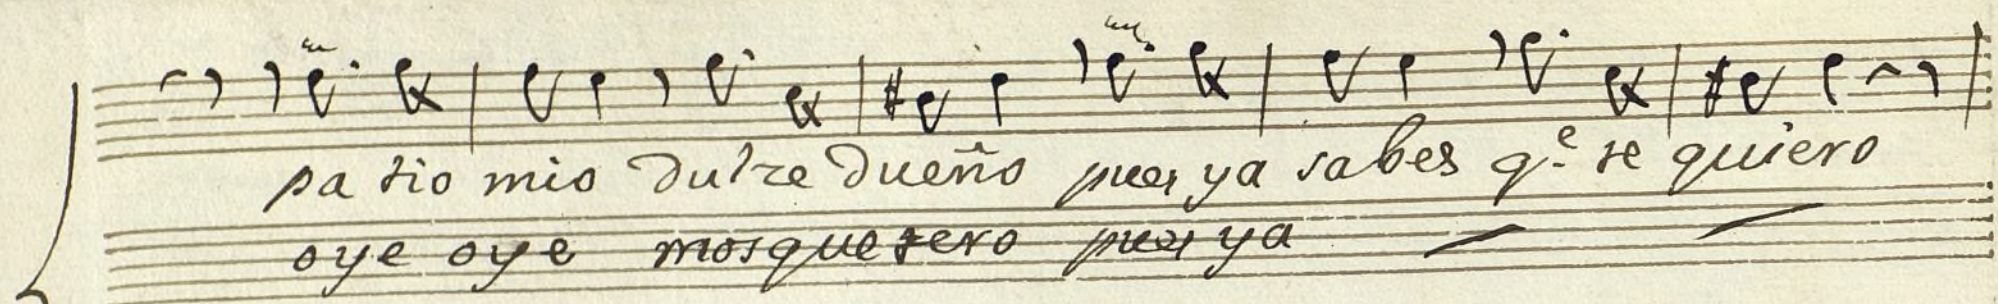 patio mio dulze dueño pues ya sabes q.e te quiero
oye oye mosquetero pues ya